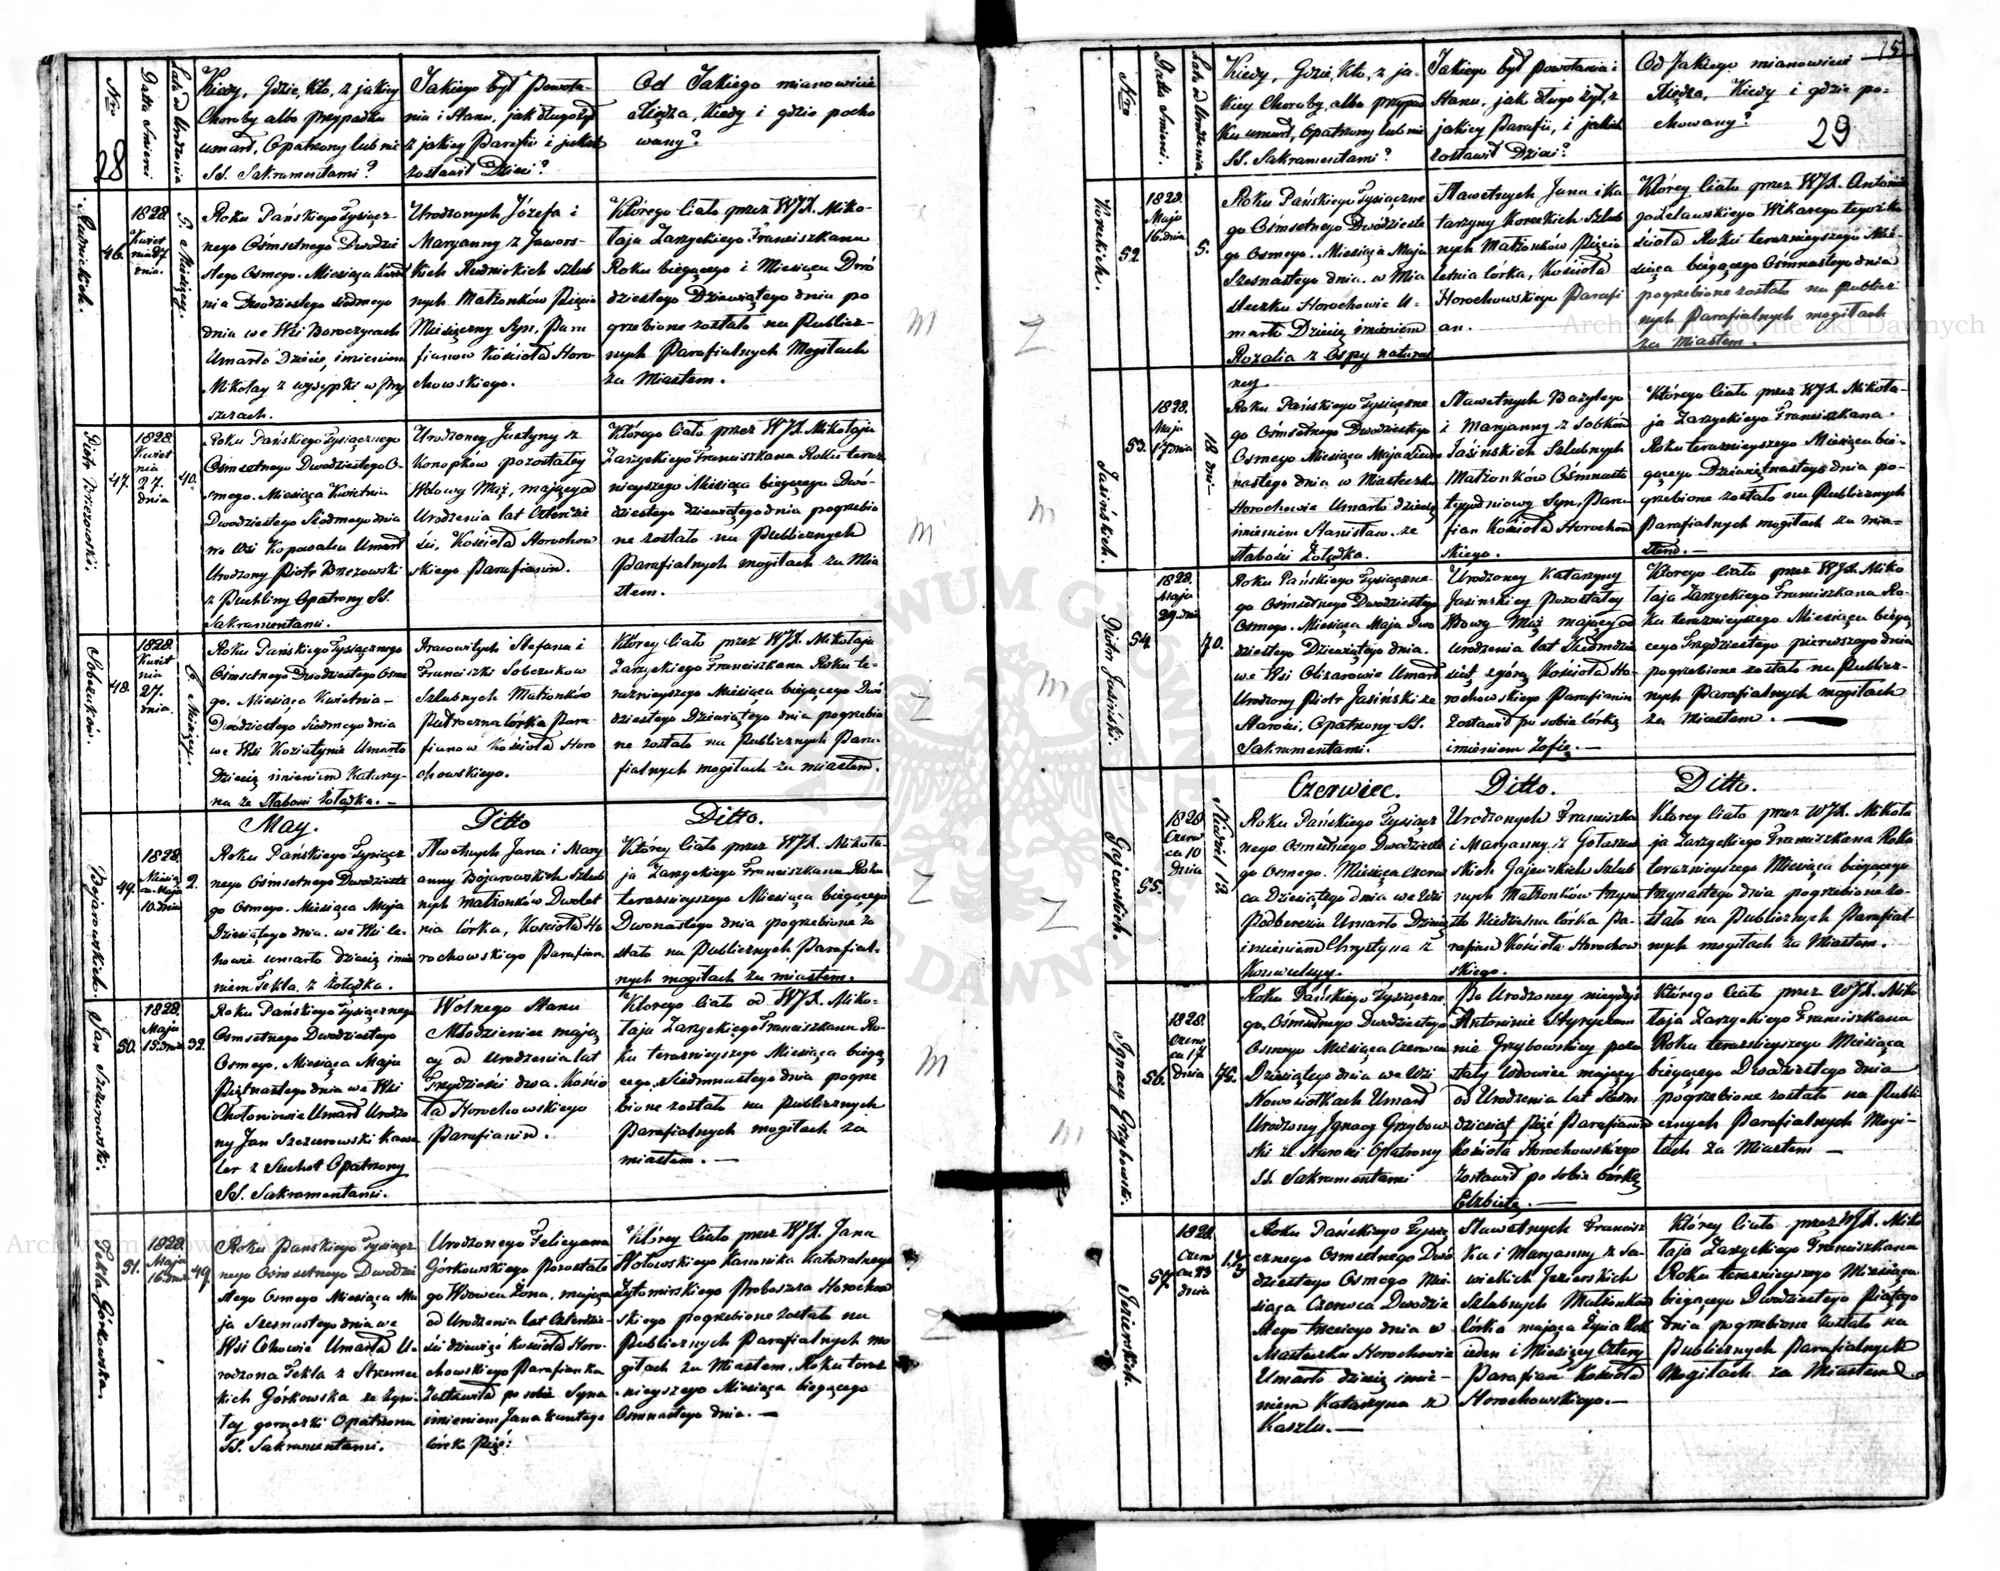 28
Nro
Data Śmierci
Lata od Urodzenia
Kiedy, Gdzie, Kto, z jakiey
Choroby albo przypadku
umarł, Opatrzony lub nie
SS. Sakramentami?
Jakiego był Powoła-
nia i Stanu, jak długo żył
z jakiey Parafii i jakie
zostawił Dzieci?
Od Jakiego mianowicie
Xiędza, Kiedy i gdzie pocho
wany?
Rudnickich.
46.
1828
Kwiet
nia 27
dnia.
5. Miesięcy.
Roku Pańskiego Tysiącz-
nego Ośmsetnego Dwudzie
stego Osmego. Miesiąca Kwiet
nia Dwudziestego siódmego
dnia we Wsi Boroczycach
Umarło Dziecie, imieniem
Mikołay z wysypki w Pry
szczach.
Urodzonych Józefa i
Maryanny z Jawors-
kich Rudnickich Szlub
nych Małżonków Pięcio
Miesięczny Syn, Para
fianow Kościoła Horo-
chowskiego.
Którego Ciało przez WJX. Miko-
łaja Zarzyckiego Franciszkana
Roku bieżącego i Miesiąca Dwó
dziestego Dziewiątego dnia po
grzebione zostało na Publicz-
nych Parafialnych Mogiłach
za Miastem.
Piotr Brzezowski.
47.
1828.
Kwiet
nia
27.
dnia
40.
Roku Pańskiego Tysiącznego
Ośmsetnego Dwudziestego O-
smego. Miesiąca Kwietnia
Dwudziestego Siódmego dnia
we Wsi Umarł
Urodzony Piotr Brzezowski
z Puchliny Opatrzony SS.
Sakramentami.
Urodzoney Justyny z
Konopków pozostałey
Wdowy Mąż, mający od
Urodzenia lat Czterdzie
ści, Kościoła Horochow
skiego Parafianin.
Którego Ciało przez WJX. Mikołaja
Zarzyckiego Franciszkana Roku teraz
nieyszego Miesiąca bieżącego Dwó-
dziestego dziewiątego dnia pogrzebio
ne zostało na Publicznych
Parafialnych mogiłach za Mia
stem.
Sobczuków.
48.
1828.
Kwiet
nia
27.
dnia.
6 Miesięcy.
Roku Pańskiego Tysiącznego
Ośmsetnego Dwudziestego Osme
go. Miesiąca Kwietnia
Dwudziestego Siódmego dnia
we Wsi Koziatynie Umarło
Dziecię imieniem Katarzy-
na ze Słabości żołądka.
Pracowitych Stefana i
Franciszki Sobczukow
Szlubnych Małżonków
Półroczna Córka Para-
fianow Kościoła Horo
chowskiego.
Którey Ciało przez WJX. Mikołaja
Zarzyckiego Franciszkana Roku te-
raźnieyszego Miesiąca bieżącego Dwó
dziestego Dziewiątego dnia pogrzebio
ne zostało na Publicznych Para-
fialnych mogiłach za miastem.
May. Ditto Ditto.
Bojarowskich.
49.
1828.
Miesią
ca Maja
10. dnia
2.
Roku Pańskiego Tysiącz
nego Ośmsetnego Dwudzieste
go Osmego. Miesiąca Maja
Dziesiątego dnia. we Wsi Ce-
howie umarło dziecię imie
niem Tekla, z Żołądka.
Sławetnych Jana i Mary
anny Bojarowskich Szlub
nych małżonków Dwulet
nia Córka, Kościoła Ho
rochowskiego Parafian.
Którey Ciało przez WJX. Mikoła-
ja Zarzyckiego Franciszkana Roku
teraznieyszego Miesiąca bieżącego
Dwonastego dnia pogrzebione zo
stało na Publicznych Parafial-
nych mogiłach za miastem.
Jan Szczurowski.
50.
1828.
Maja
15. dnia
32.
Roku Pańskiego Tysiącznego
Osmsetnego Dwudziestego
Osmego. Miesiąca Maja
Piętnastego dnia we Wsi
Chołoniowie Umarł Urodzo
ny Jan Szczurowski Kawa
ler z Suchot Opatrzony
SS. Sakramentami.
Wolnego Stanu
Młodzieniec mają
cy od Urodzenia lat
Trzydzieści dwa. Kościo
ła Horochowskiego
Parafianin.
Którego Ciało od WJX. Miko-
łaja Zarzyckiego Franciszkana Ro-
ku teraznieyszego Miesiąca bieżą
cego, Siedmnastego dnia pogrze
bione zostało na Publicznych
Parafialnych mogiłach za
miastem.
Tekla Górkowska.
51.
1828.
Maja
16. dnia
49.
Roku Pańskiego Tysiącz
nego Ośmsetnego Dwudzie
stego Osmego Miesiąca Ma
ja Szesnastego dnia we
Wsi Cehowie Umarła U-
rodzona Tekla z
kich Górkowska ze
tey gorączki Opatrzona
SS. Sakramentami.
Urodzonego Felicyana
Górkowskiego pozostałe
go Wdowca Żona, mająca
od Urodzenia lat Czterdzie-
ści dziewięć Kościoła Horo-
chowskiego Parafianka
Zostawiła po sobie Syna
imieniem Jana
Córek Pięć:
Którey Ciało przez WJX. Jana
Hołowskiego Kanonika Katedralnego
Żytomirskiego Proboszcza Horochow
skiego pogrzebione zostało na
Publicznych Parafialnych mo
giłach za Miastem. Roku teraz
nieyszego Miesiąca bieżącego
Osmnastego dnia.
M
M
Z
Z
M
Z
15
29
Nro
Data Śmierci.
Lata od Urodzenia.
Kiedy, Gdzie, Kto, z ja-
kiey Choroby, albo przypad
ku umarł, Opatrzony lub nie
SS. Sakramentami?
Jakiego był powołania i
Stanu, jak długo żył, z
jakiey Parafii, i jakie
zostawił Dzieci?
Od Jakiego mianowicie
Xiędza, Kiedy i gdzie po-
chowany?
Koreckich.
52.
1828.
Maja
16. dnia
5.
Roku Pańskiego Tysiączne
go Ośmsetnego Dwudzieste
go Osmego. Miesiąca Maja
Szesnastego dnia. w Mia
steczku Horochowie U-
marło Dziecię imieniem
Rozalia z Ospy natural
ney
Sławetnych Jana i Ka
tarzyny Koreckich Szlub
nych Małżonków Pięcio
letnia Córka, Kościoła
Horochowskiego Parafi
an.
Którey Ciało przez WJX. Antonie
go Żelawskiego Wikarego tegoż Ko
ścioła Roku teraznieyszego Mie-
siąca bieżącego Ośmnastego dnia
pogrzebione zostało na Publicz
nych Parafialnych mogiłach
za Miastem.
Jasińskich.
53.
1828.
Maja
17 dnia
18. dni
Roku Pańskiego Tysiączne
go Ośmsetnego Dwudziestego
Osmego Miesiąca Maja Siedm
nastego dnia w Miasteczku
Horochowie Umarło dziecię
imieniem Stanisław. ze
słabości Żołądka.
Sławetnych Bazylego
i Maryanny z Sobków
Jasińskich Szlubnych
Małżonków Ośmnasto
tygodniowy Syn, Para
fian Kościoła Horochow
skiego.
Którego Ciało przez WJX. Mikoła-
ja Zarzyckiego Franciszkana.
Roku teraznieyszego Miesiąca bie-
żącego Dziewiętnastego dnia po-
grzebione zostało na Publicznych
Parafialnych mogiłach za mia-
stem.
Piotr Jasiński.
54
1828.
Maja
29. dnia
70.
Roku Pańskiego Tysiączne-
go Ośmsetnego Dwudziestego
Osmego. Miesiąca Maja Dwu
dziestego Dziewiątego dnia.
we Wsi Olizarowie Umarł
Urodzony Piotr Jasiński ze
Starości, Opatrzony SS.
Sakramentami.
Urodzoney Katarzyny
Jasinskiey Pozostałey
Wdowy Mąż mający od
urodzenia lat Siedmdzie
siąt zgórą Kościoła Ho-
rochowskiego Parafianin
Zostawił po sobie Córkę
imieniem Zofię.
Którego Ciało przez WJX. Miko
łaja Zarzyckiego Franciszkana Ro-
ku teraznieyszego Miesiąca bieżą
cego Trzydziestego pierwszego dnia
pogrzebione zostało na Publicz-
nych Parafialnych mogiłach
za Miastem.
Czerwiec. Ditto. Ditto.
Gajewskich.
55.
1828
Czerw
ca 10
dnia
Niedziel 13
Roku Pańskiego Tysiącz
nego Osmsetnego Dwudzieste
go Osmego. Miesiąca Czerw
ca Dziesiątego dnia we Wsi
Podberezie Umarło Dziecię
imieniem Chrystyna z
Konwulsyy.
Urodzonych Franciszka
i Maryanny z
skich Gajewskich Szlub
nych Małżonków Trzyna
sto Niedzielna Córka Pa-
rafian Kościoła Horochow
skiego.
Którey Ciało przez WJX. Mikoła
ja Zarzyckiego Franciszkana Roku
teraznieyszego Miesiąca bieżącego
trzynastego dnia pogrzebione zo-
stało na Publicznych Parafial-
nych mogiłach za Miastem.
Ignacy Grzybowski.
56.
1828.
Czerw
ca 17
dnia
75.
Roku Pańskiego Tysiączne
go, Osmsetnego Dwudziestego
Osmego Miesiąca Czerwca
Dziesiątego dnia we Wsi
Nowosiołkach Umarł
Urodzony Ignacy Grzybow
ski ze Starości Opatrzony
SS. Sakramentami
Po Urodzoney niegdyś
Antoninie
nie Grzybowskiey pozo
stały Wdowiec mający
od Urodzenia lat Siedm
dziesiąt Pięć Parafianin
Kościoła Horochowskiego
Zostawił po sobie Córkę
Elżbietę.
Którego Ciało przez WJX. Miko
łaja Zarzyckiego Franciszkana
Roku teraznieyszego Miesiąca
bieżącego Dwudziestego dnia
pogrzebione zostało na Publi
cznych Parafialnych Mogi-
łach za Miastem
Jezierskich.
57.
1828.
Czerw
ca 23
dnia
Roku Pańskiego Tysią
cznego Osmsetnego Dwu
dziestego Osmego Mie-
siąca Czerwca Dwudzie
stego trzeciego dnia w
Miasteczku Horochowie
Umarło dziecię imie-
niem Katarzyna z
Kaszlu.
Sławetnych Francisz
ka i Maryanny z Sa-
wickich Jezierskich
Szlubnych Małżonków
Córka mająca Życia Rok
ieden i Miesięcy Cztery
Parafian Kościoła
Horochowskiego.
Którey Ciało przez WJX. Miko
łaja Zarzyckiego Franciszkana
Roku teraznieyszego Miesiąca
bieżącego Dwudziestego Piątego
Dnia pogrzebione zostało na
Publicznych Parafialnych
Mogiłach za Miastem.
Z
M
M
Z
M
Archiwum Główne Akt Dawnych
Archiwum Główne Akt Dawnych
ARCHIWUM GŁÓWNE AKT DAWNYCH